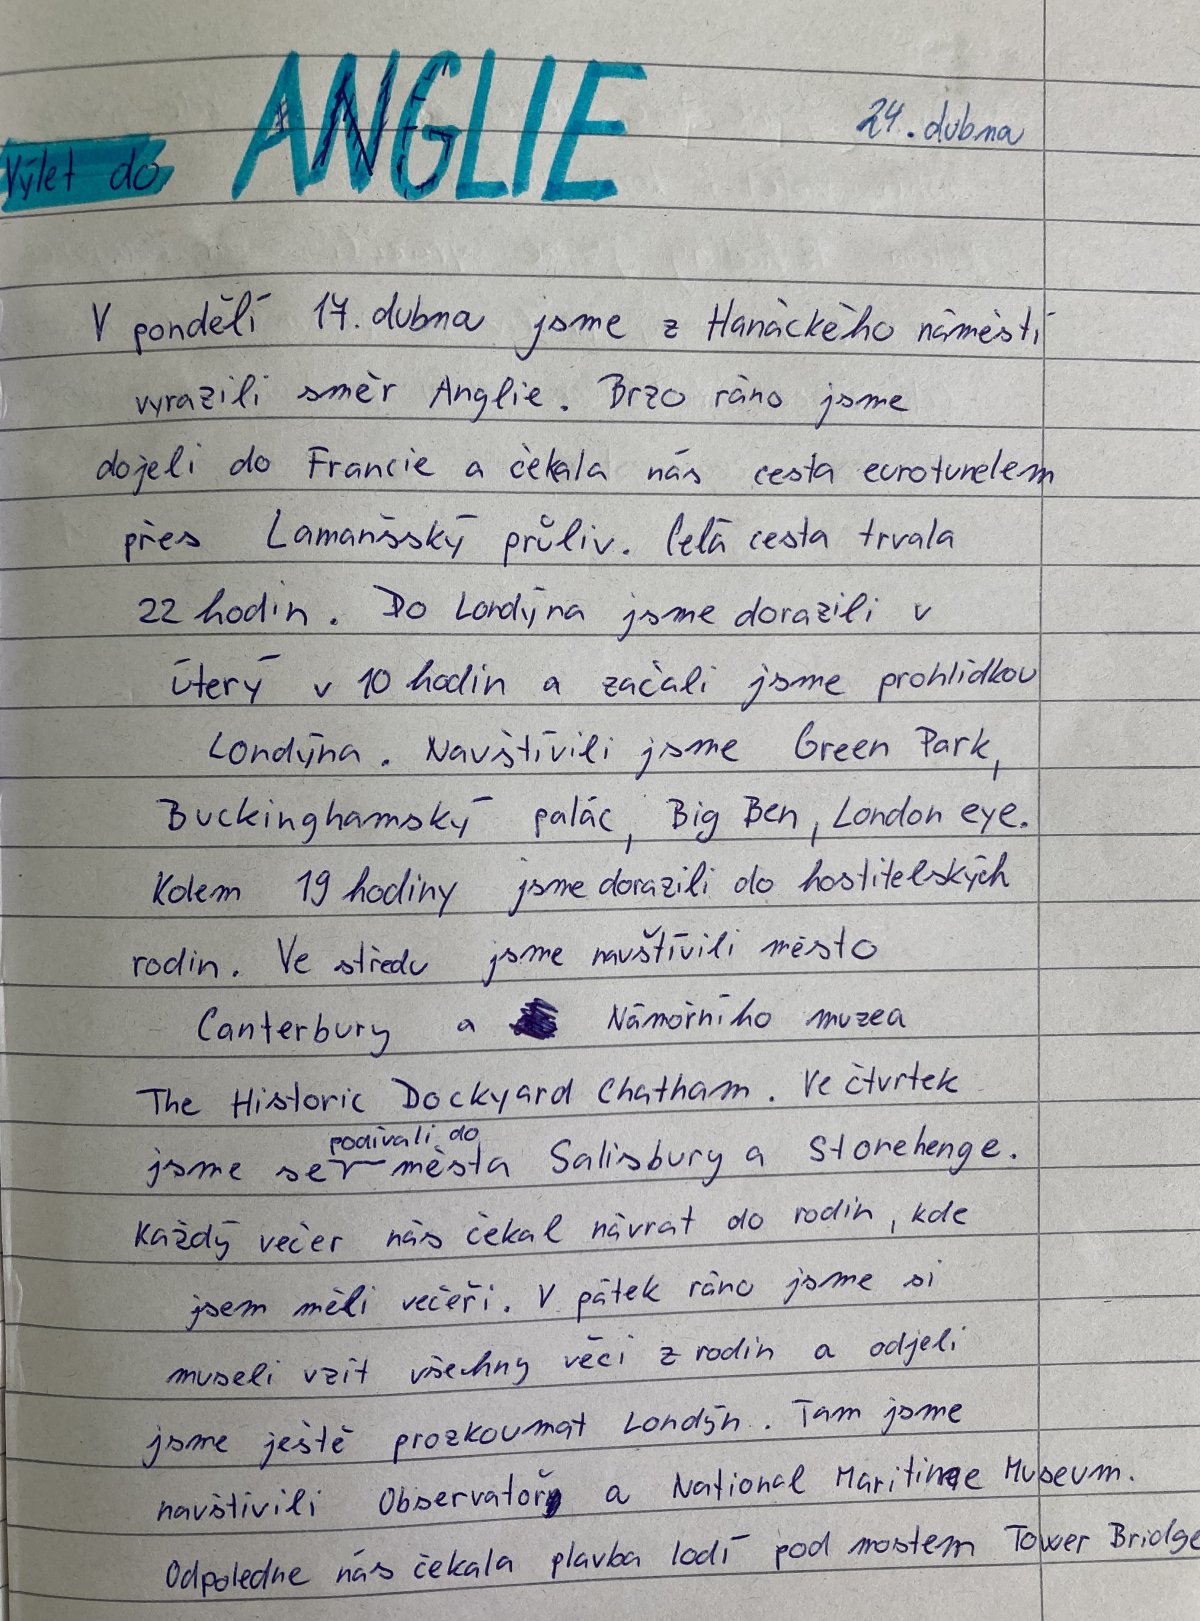 24. dubna
Výlet do ANGLIE
V pondělí 17. dubna jsme z Hanáckého náměstí
vyrazili směr Anglie. Brzo ráno jsme
dojeli do Francie a čekala nás cesta eurotunelem
přes Lamanšský průliv. Celá cesta trvala
22 hodin. Do Londýna jsme dorazili v
úterý v 10 hodin a začali jsme prohlídkou
Londýna. Navštívili jsme Green Park,
Buckinghamský palác, Big Ben, London eye.
Kolem 19 hodiny jsme dorazili do hostitelských
rodin. Ve středu jsme navštívili město
Canterbury a Námořního muzea
The Historic Dockyard Chatham. Ve čtvrtek
jsme se podívali do města Salisbury a Stonehenge.
Každý večer nás čekal návrat do rodin, kde
jsem měli večeři. V pátek ráno jsme si
museli vzít všechny věci z rodin a odjeli
jsme ještě prozkoumat Londýn. Tam jsme
navštívili Observatoř a National Maritime Museum.
Odpoledne nás čekala plavba lodí pod mostem Tower Bridge